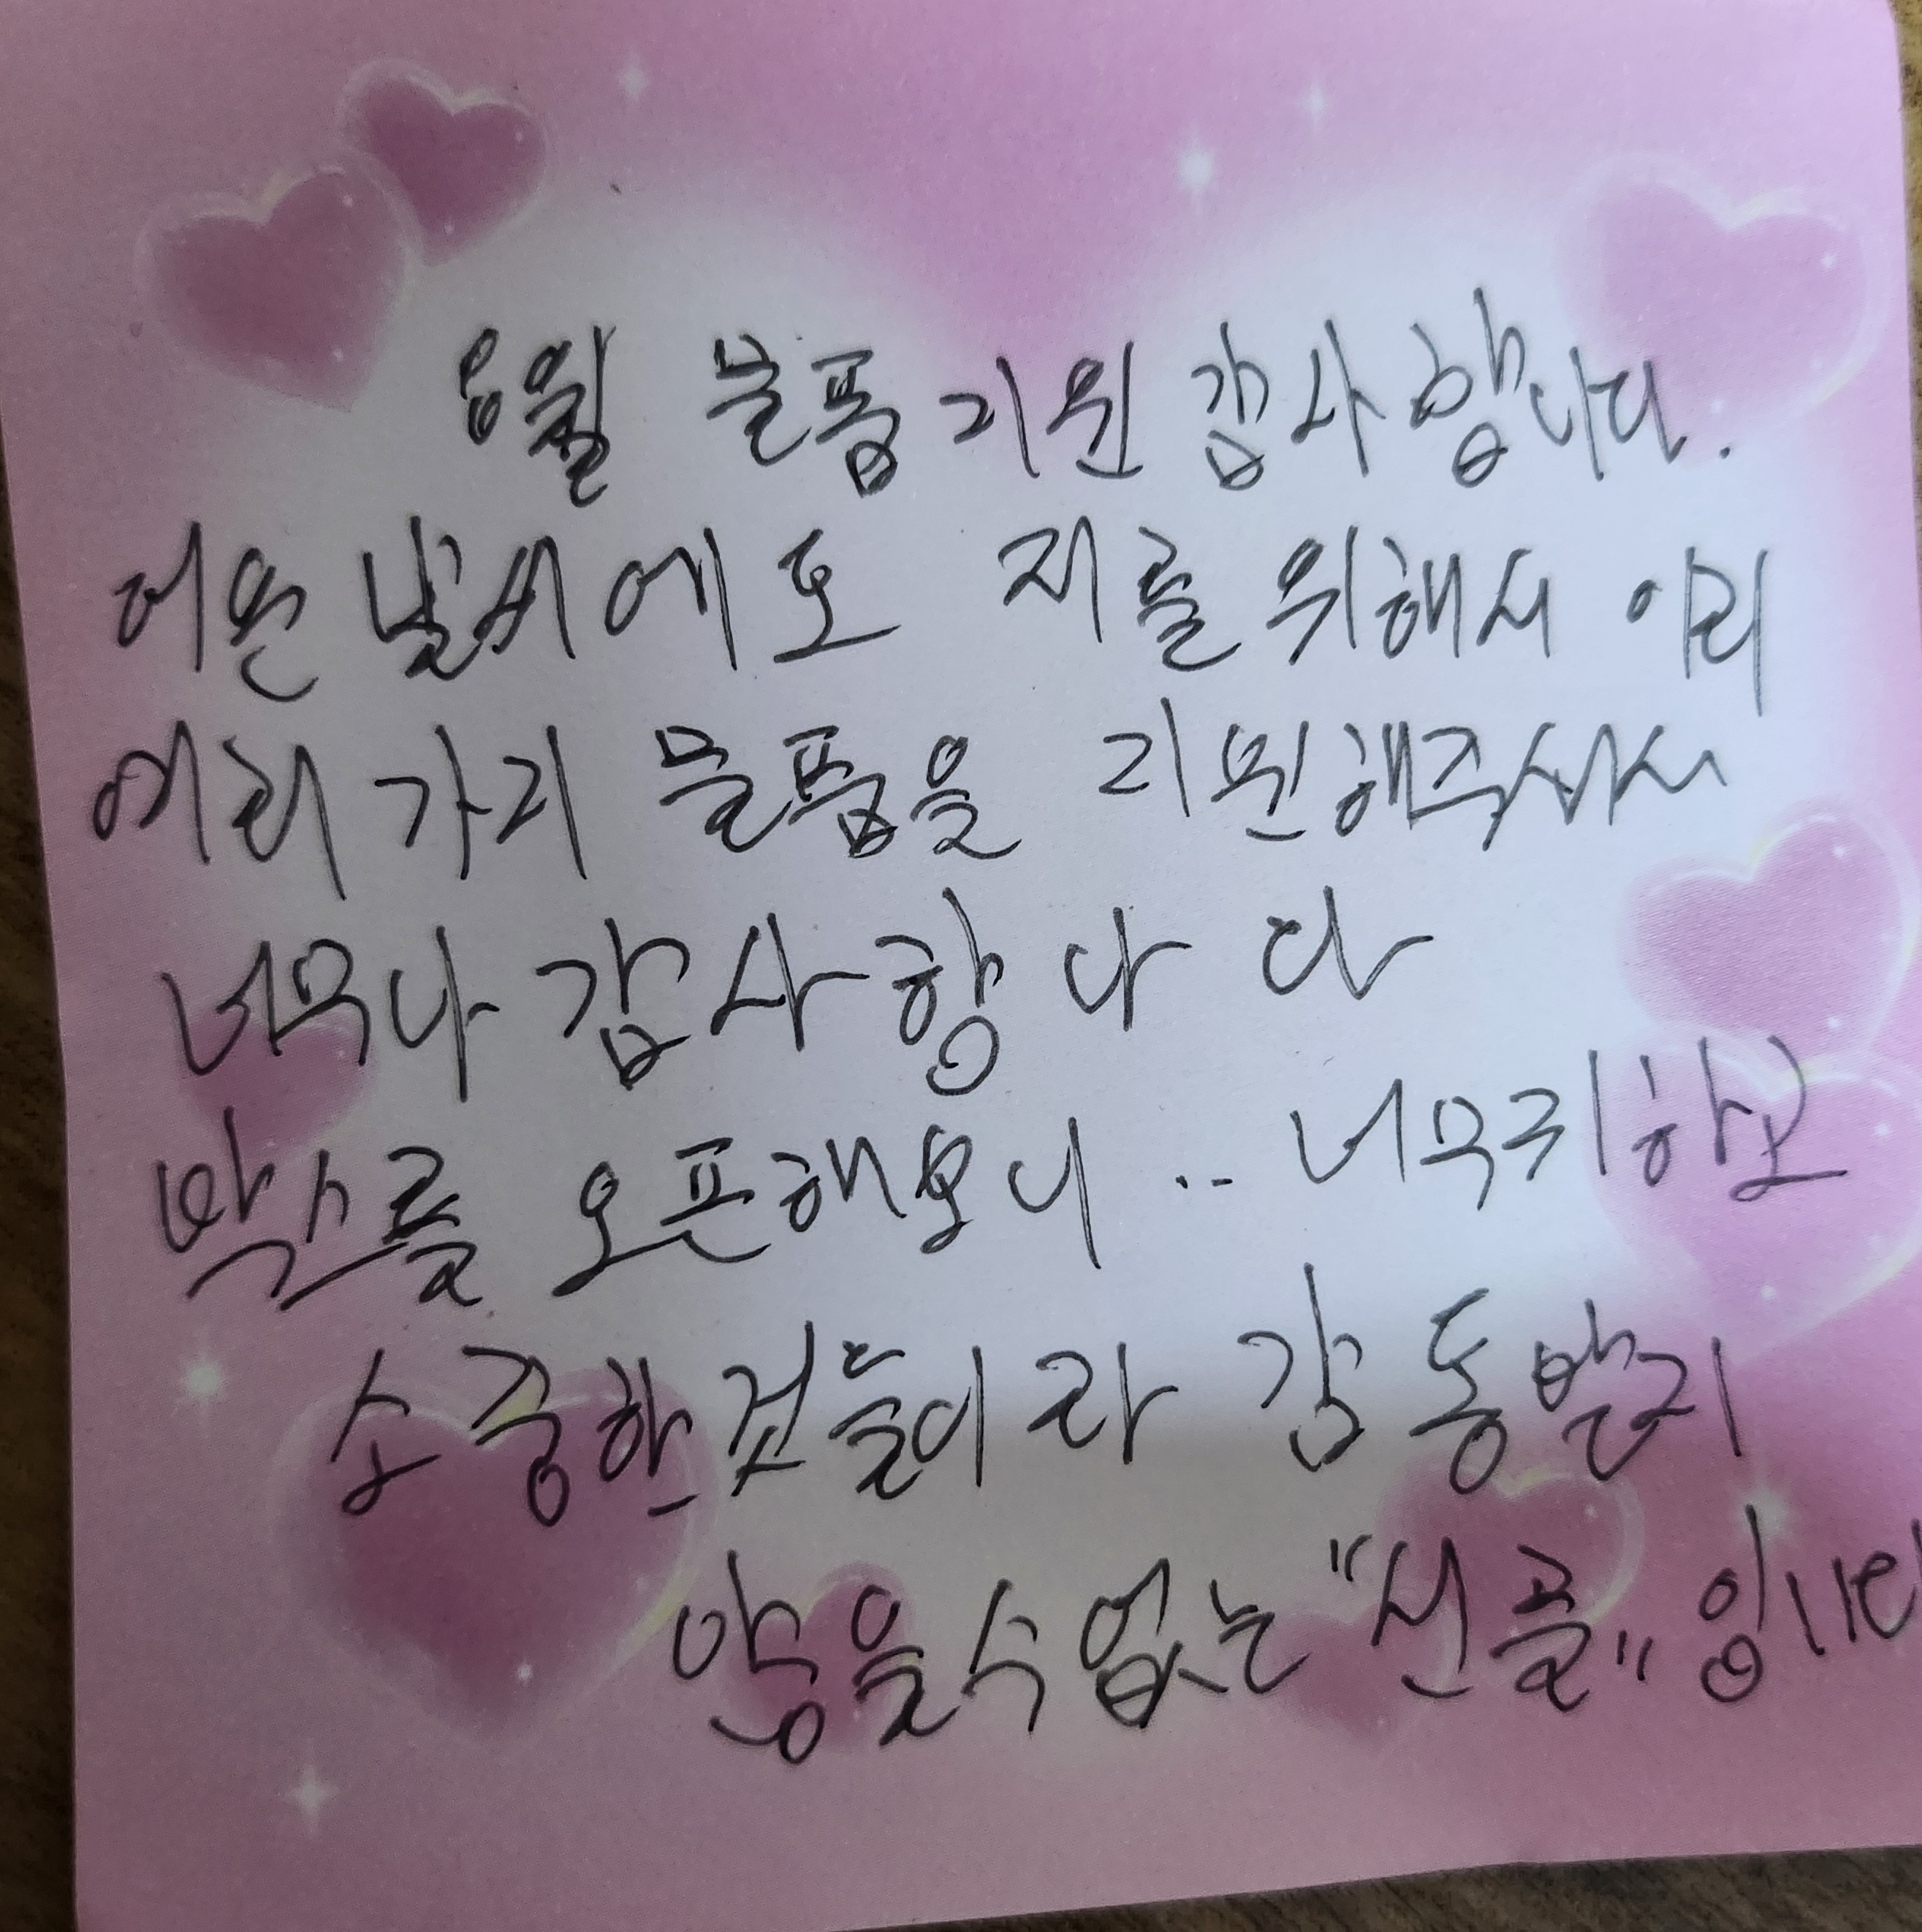 6월 물품지원 감사합니다.
더운 날씨에도 저를 위해서 이리
여러 가지 물품을 지원해주셔서
너무나 감사합니다
박스를 오픈해보니.. 너무귀하고
소중한것들이라 감동받지
않을수없는 "선물" 입니다